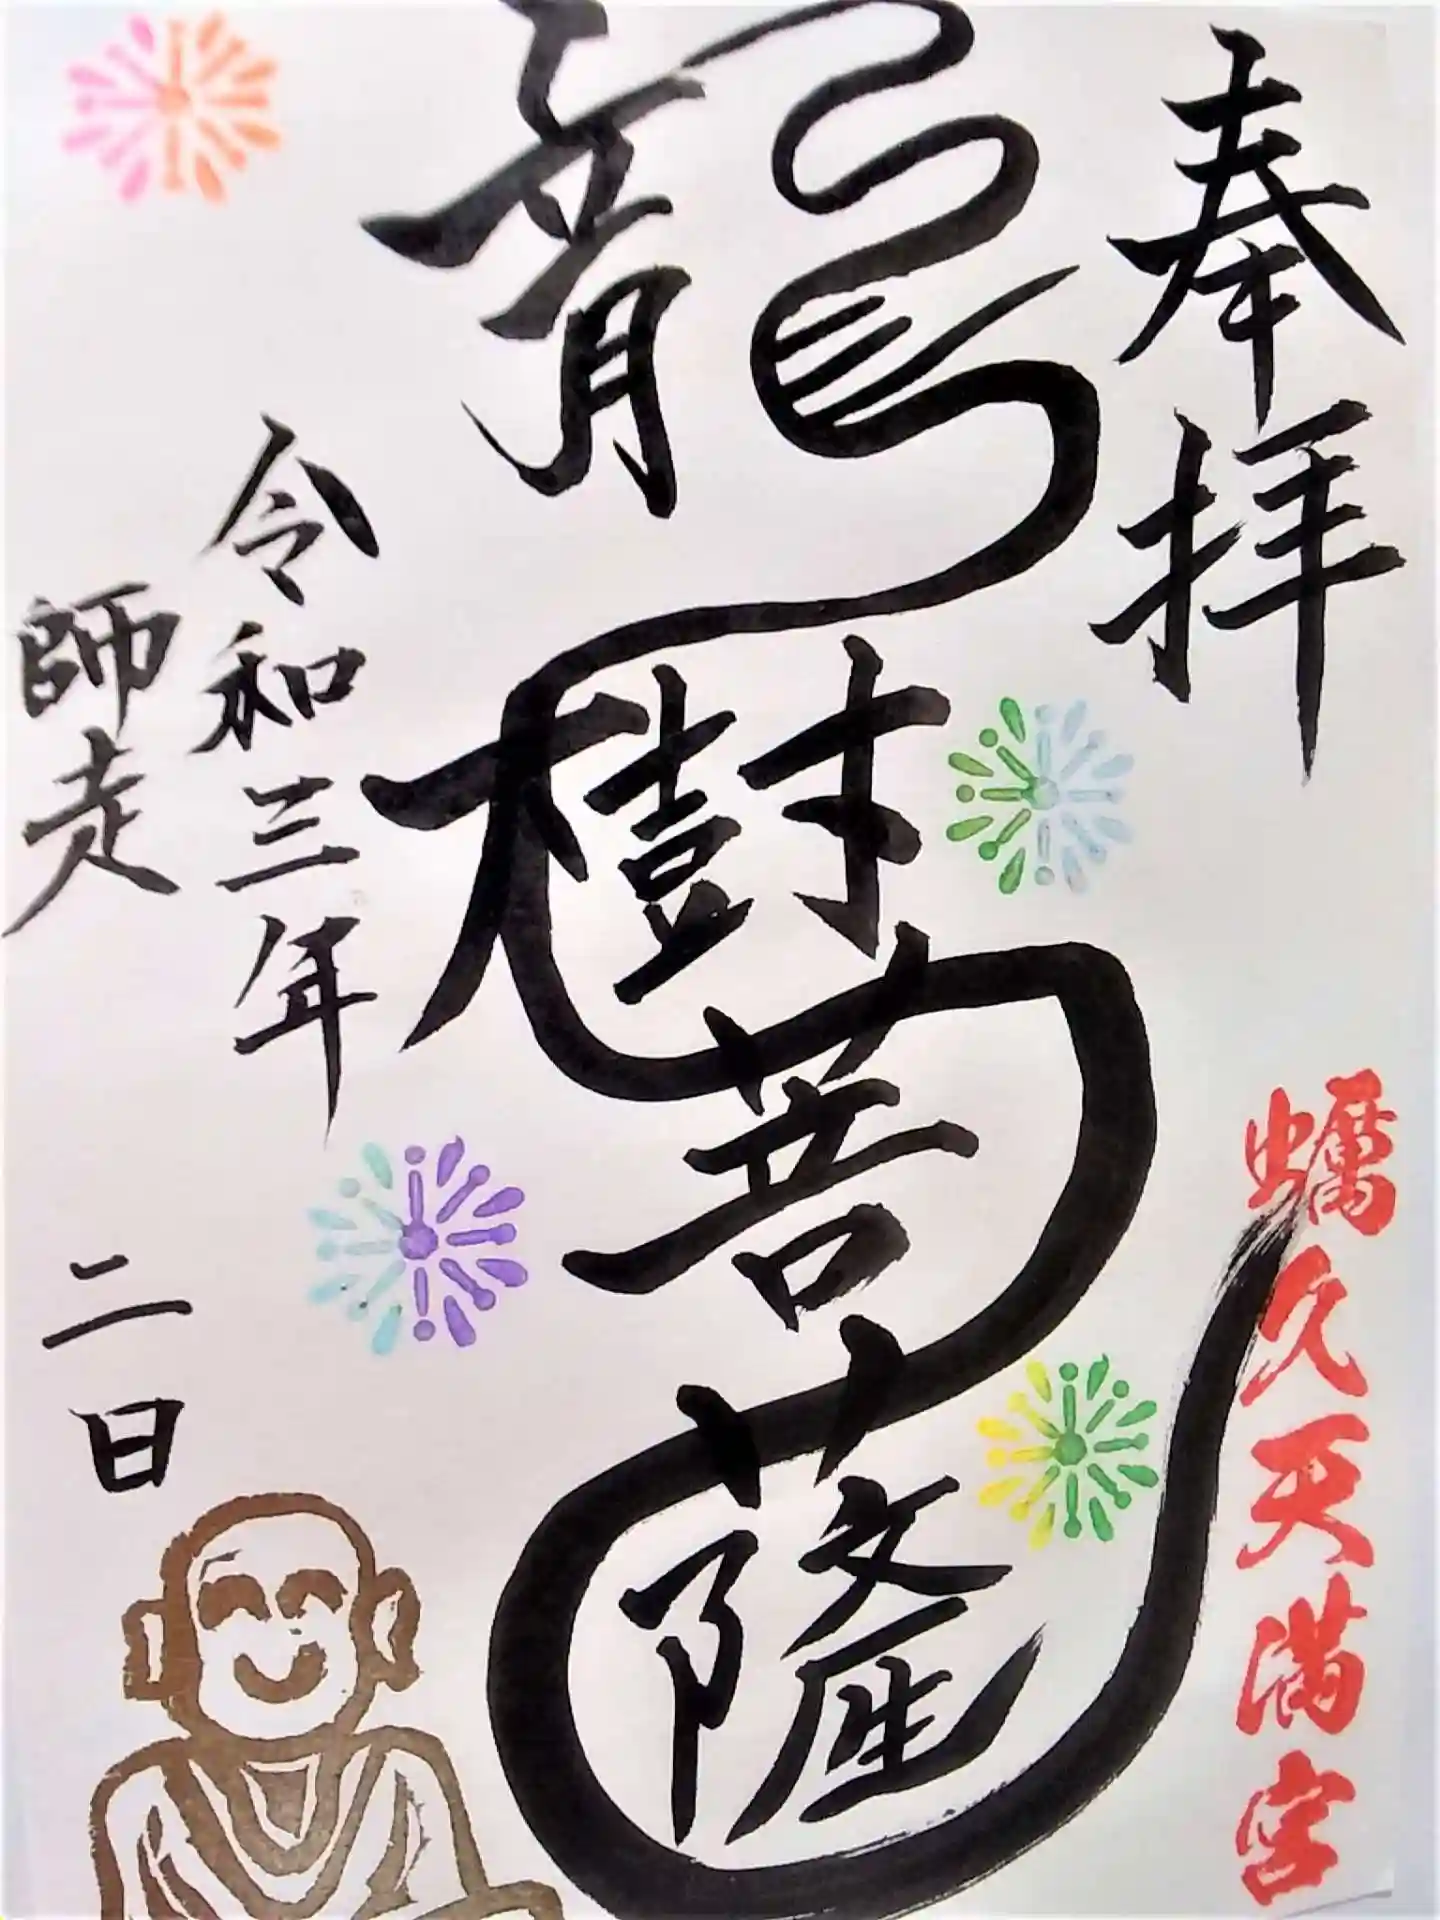 奉拝
龍樹菩薩
令和三年
師走
二日
蠣久天満宮